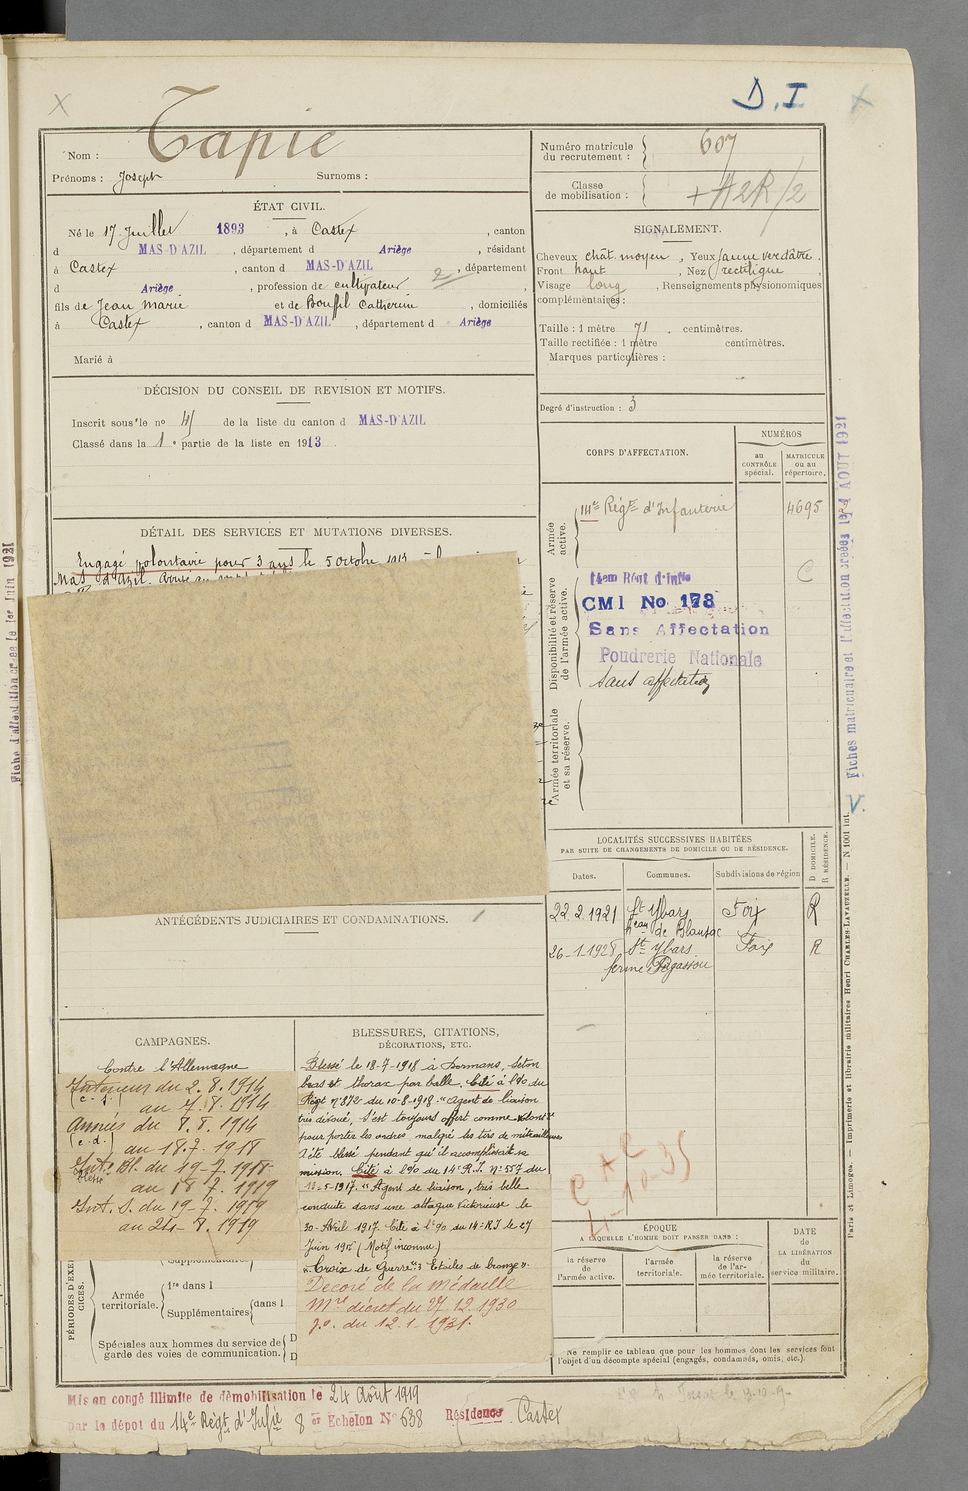 D.I
Nom : Tapie
Prénoms : Joseph Surnoms :
Numéro matricule du recrutement : 607
Classe de mobilisation :
ÉTAT CIVIL.
Né le 17 Juillet 1893, à Castex, canton
d MAS-D'AZIL, département d Ariège, résidant
à Castex, canton d MAS-D'AZIL, département
d Ariège, profession de cultivateur,
fils de Jean Marie et de Bouffil Catherine, domiciliés
à Castex, canton d MAS-D'AZIL, département d Ariège
Marié à
SIGNALEMENT.
Cheveux chât. moyen, Yeux jaune verdâtre.
Front haut, Nez rectiligne,
Visage long, Renseignements physionomiques
complémentaires :
Taille : 1 mètre 71 centimètres.
Taille rectifiée : 1 mètre centimètres.
Marques particulières :
Degré d'instruction : 3
DÉCISION DU CONSEIL DE REVISION ET MOTIFS.
Inscrit sous le nº 41 de la liste du canton d MAS-D'AZIL
Classé dans la 1e partie de la liste en 1913.
DÉTAIL DES SERVICES ET MUTATIONS DIVERSES.
Engagé volontaire pour 3 ans le 5 octobre 1913
Mas d'Azil.
CORPS D'AFFECTATION.
NUMÉROS
au CONTRÔLE spécial.
MATRICULE ou au répertoire.
Armée active.
14e Régt d'Infanterie 4695
Disponibilité et réserve de l'armée active.
14em Régt d'Infie
CMI No 173
Sans Affectation
Poudrerie Nationale
Sans affectation
C
Armée territoriale et sa réserve.
LOCALITÉS SUCCESSIVES HABITÉES
PAR SUITE DE CHANGEMENTS DE DOMICILE OU DE RÉSIDENCE.
Dates. Communes. Subdivisions de région
D DOMICILE.
R RÉSIDENCE.
22.2.1921 St Ybars Foix R
26-1-1928 Ste Ybars Foix R
ANTÉCÉDENTS JUDICIAIRES ET CONDAMNATIONS.
CAMPAGNES.
Contre l'Allemagne
Intérieur du 2.8.1914
(c.d.) au 7.8.1914
Armées du 8.8.1914
(c.d.) au 18.7.1918
Int. Bl. du 19-7.1918
blessé au 18.7.1919
Int. S. du 19-7.1919
au 24-8.1919
BLESSURES, CITATIONS,
DÉCORATIONS, ETC.
Blessé le 18-7-1918 à Dormans, Séton
bras et thorax par balle. Cité à l'Oo du
Régt n° 872 du 10-8-1918. "Agent de liaison
très dévoué, s'est toujours offert comme volontre
pour porter les ordres, malgré les tirs de mitrailleuses
A été blessé pendant qu'il accomplissait sa
mission. Cité à l'Oo du 14e R.I. n° 557 du
12-5-1917. "Agent de liaison, très belle
conduite dans une attaque victorieuse le
30-Avril 1917. Cité à l'Oo du 14e RI le 27
Juin 1915 (Motif inconnu)
"Croix de Guerre" 3 Etoiles de bronze".
Décoré de la Médaille
Mre décret du 27.12.1930
J.O. du 12.1-1931.
PÉRIODES D'EXERCICES.
Supplémentaires
Armée territoriale. 1re dans l
Supplémentaires dans l
Spéciales aux hommes du service de garde des voies de communication.
ÉPOQUE
A LAQUELLE L'HOMME DOIT PASSER DANS :
la réserve de l'armée active.
l'armée territoriale.
la réserve de l'armée territoriale.
DATE de LA LIBÉRATION du service militaire.
Ne remplir ce tableau que pour les hommes dont les services font
l'objet d'un décompte spécial (engagés, condamnés, omis, etc.).
Mis en congé illimité de démobilisation le 24 Août 1919
par le dépôt du 14e Régt d'Infie 8er Echelon N° 638 Résidence Castex
Fiche d'affectation créée le 1er Juin 1921
Fiches matriculaire et d'affectation créées le 4 AOUT 1921
V.
Paris et Limoges. — Imprimerie et librairie militaires Henri CHARLES-LAVAUZELLE. — N 1001 int.